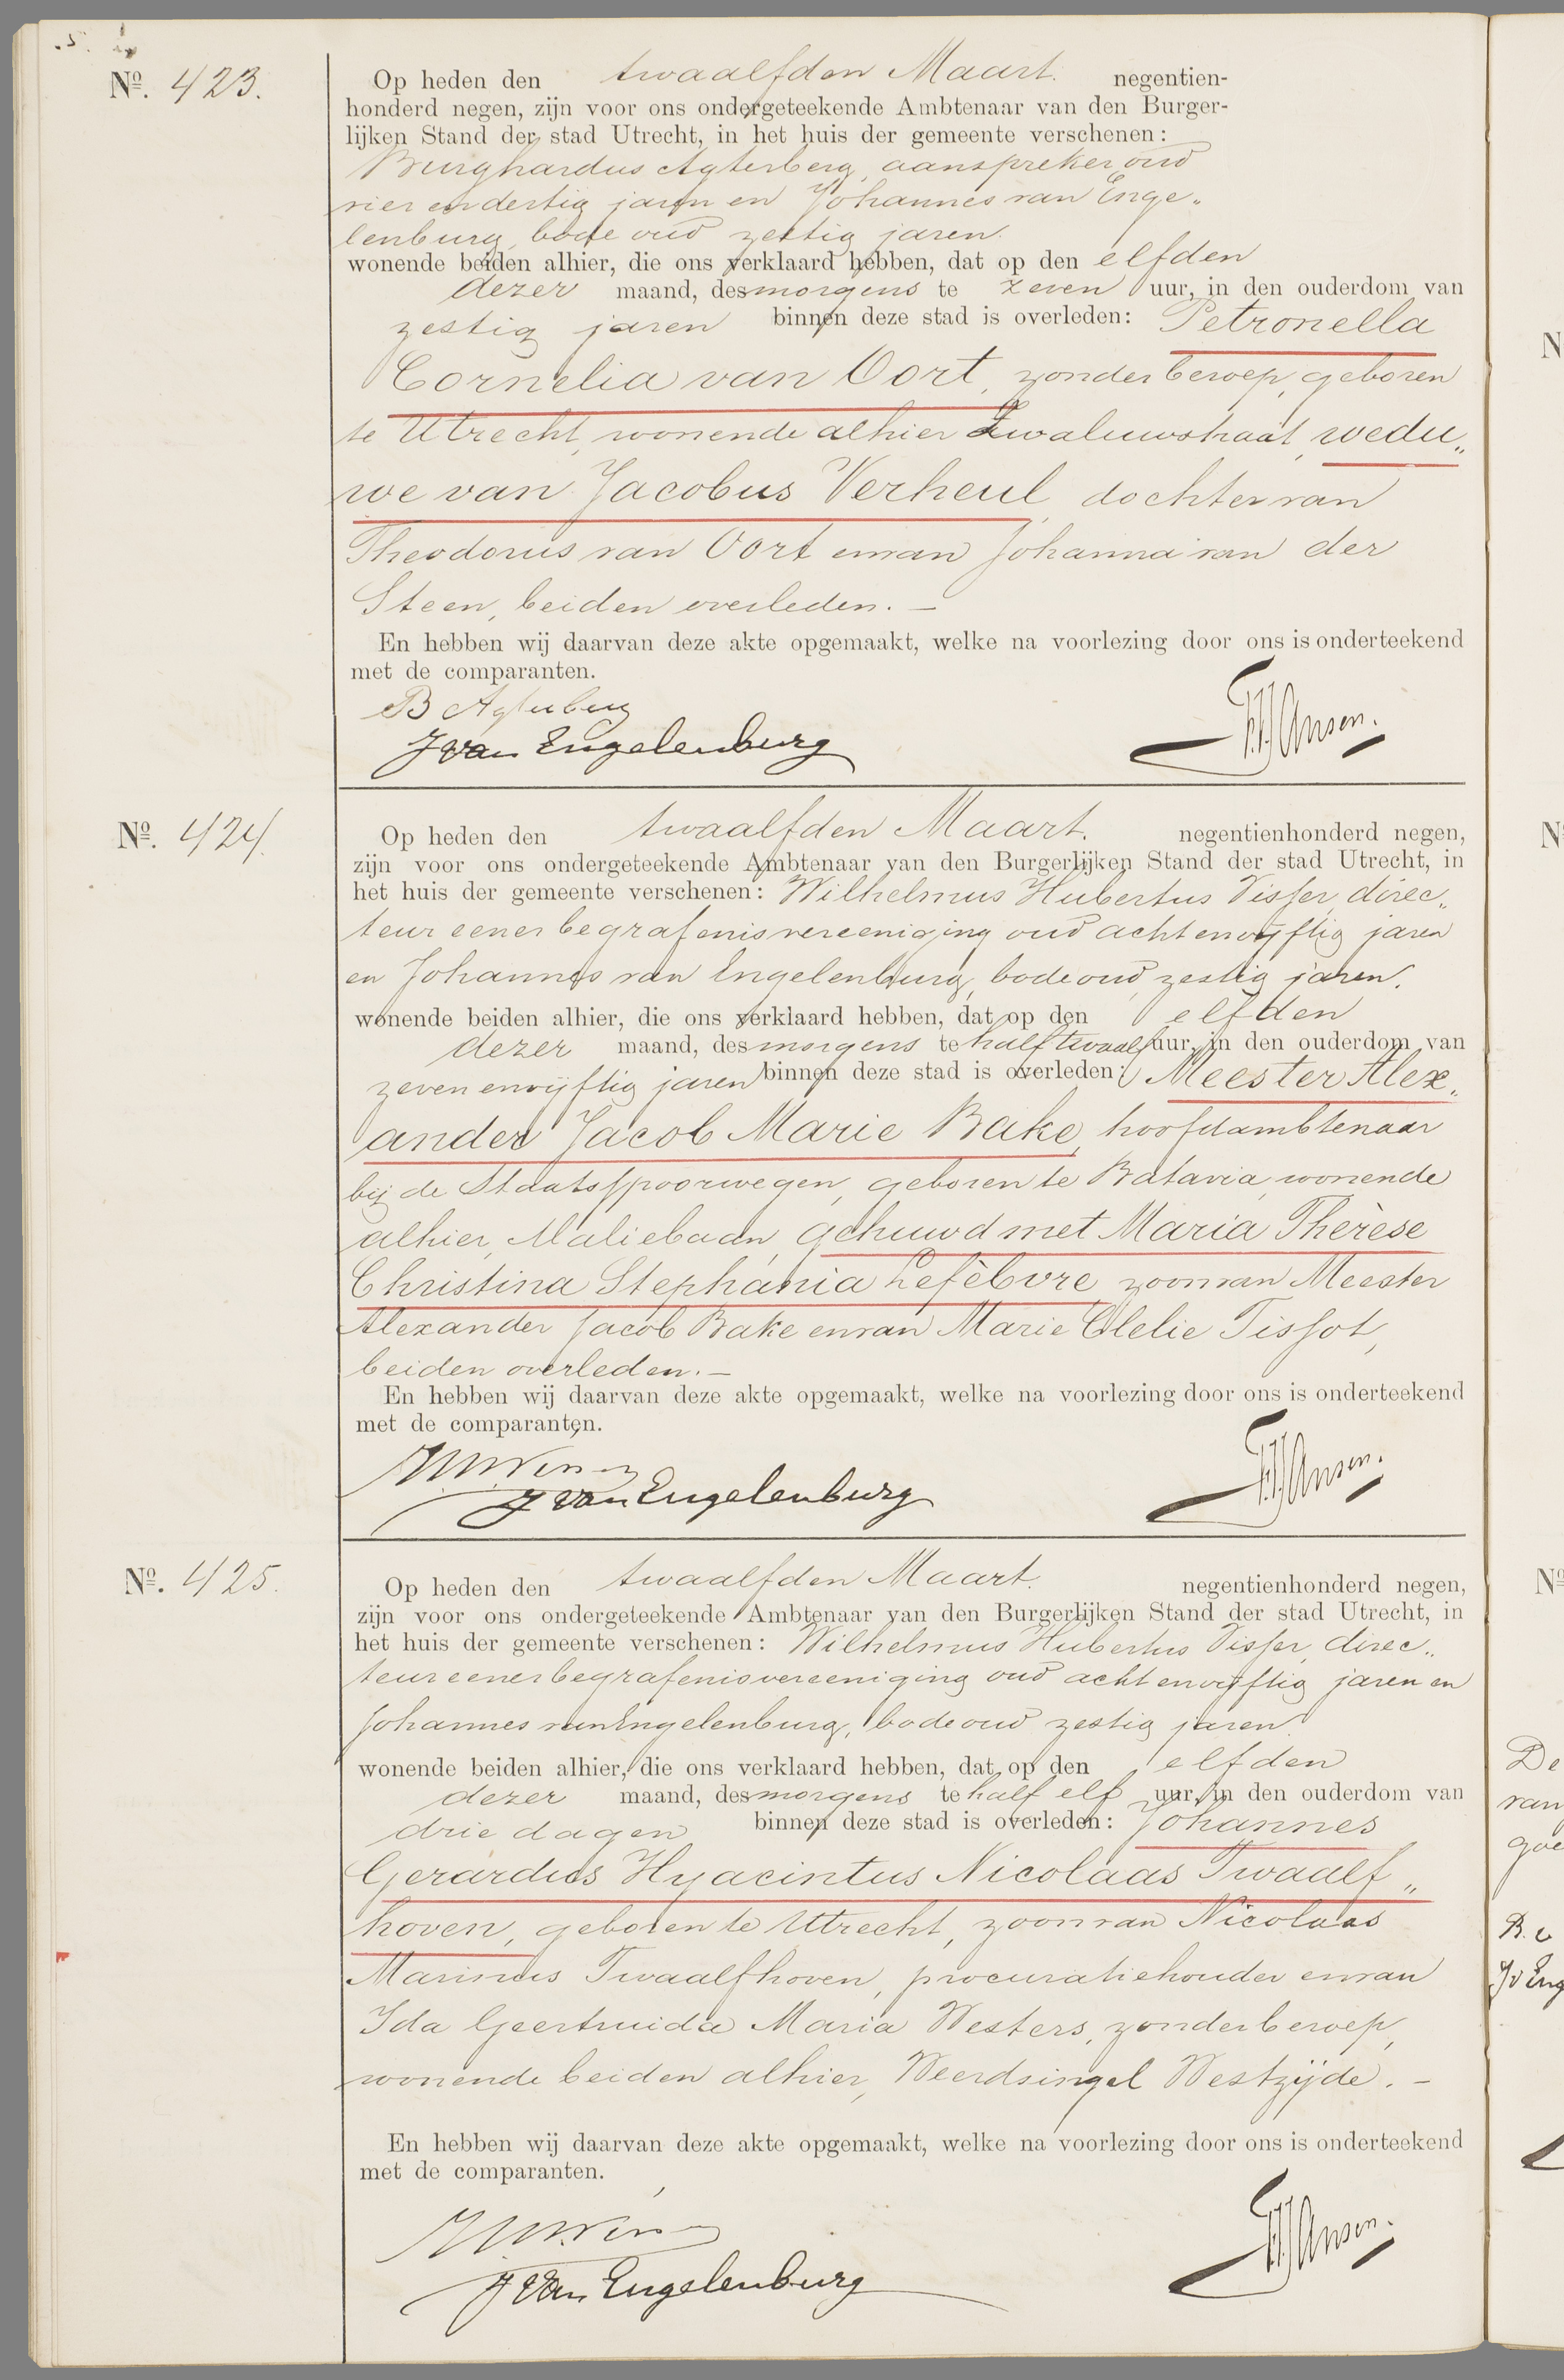 Nº. 423.
Op heden den twaalfden Maart. negentien-
honderd negen, zijn voor ons ondergeteekende Ambtenaar van den Burger-
lijken Stand der stad Utrecht, in het huis der gemeente verschenen:
Burghardus Agterberg, aanspreker oud
vier en dertig jaren en Johannes van Enge„
lenburg, bode oud zestig jaren.
wonende beiden alhier, die ons verklaard hebben, dat op den elfden
dezer maand, des morgens te zeven uur, in den ouderdom van
zestig jaren binnen deze stad is overleden: Petronella
Cornelia van Oort, zonder beroep, geboren
te Utrecht, wonende alhier Zwaluwstraat, wedu„
we van Jacobus Verheul, dochter van
Theodorus van Oort en van Johanna van der
Steen, beiden overleden. —
En hebben wij daarvan deze akte opgemaakt, welke na voorlezing door ons is onderteekend
met de comparanten.
B Agterberg
J van Engelenburg
Nº. 424.
Op heden den twaalfden Maart. negentienhonderd negen,
zijn voor ons ondergeteekende Ambtenaar van den Burgerlijken Stand der stad Utrecht, in
het huis der gemeente verschenen: Wilhelmus Hubertus Visser, direc„
teur eener begrafenisvereeniging oud acht en vijftig jaren
en Johannes van Engelenburg, bode oud zestig jaren.
wonende beiden alhier, die ons verklaard hebben, dat op den elfden
dezer maand, des morgens te half twaalf uur, in den ouderdom van
zeven en vijftig jaren binnen deze stad is overleden: Meester Alex„
ander Jacob Marie Bake, hoofdambtenaar
bij de Staatsspoorwegen, geboren te Batavia, wonende
alhier, Maliebaan, gehuwd met Maria Thérèse
Christina Stephania Lefèbvre, zoon van Meester
Alexander Jacob Bake en van Marie Clelie Tissot,
beiden overleden. —
En hebben wij daarvan deze akte opgemaakt, welke na voorlezing door ons is onderteekend
met de comparanten.
J van Engelenburg
Nº. 425.
Op heden den twaalfden Maart. negentienhonderd negen,
zijn voor ons ondergeteekende Ambtenaar van den Burgerlijken Stand der stad Utrecht, in
het huis der gemeente verschenen: Wilhelmus Hubertus Visser, direc„
teur eener begrafenisvereeniging oud acht en vijftig jaren en
Johannes van Engelenburg, bode oud zestig jaren
wonende beiden alhier, die ons verklaard hebben, dat op den elfden
dezer maand, des morgens te half elf uur, in den ouderdom van
drie dagen binnen deze stad is overleden: Johannes
Gerardus Hyacintus Nicolaas Twaalf„
hoven, geboren te Utrecht, zoon van Nicolaas
Marinus Twaalfhoven, procuratiehouder en van
Ida Geertruida Maria Westers, zonder beroep,
wonende beiden alhier, Weerdsingel Westzijde. —
En hebben wij daarvan deze akte opgemaakt, welke na voorlezing door ons is onderteekend
met de comparanten.
J van Engelenburg